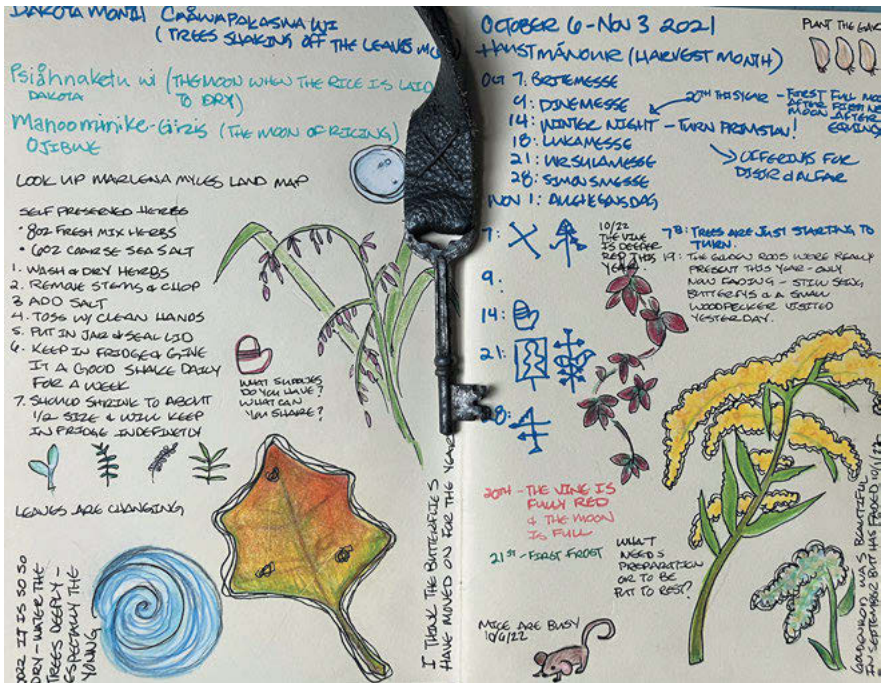 DAKOTA MONTH CAŊWAPAKASNA WI
(TREES SHAKING OFF THE LEAVES
Psiŋhnaketu wi (THE MOON WHEN THE RICE IS LAID
DAKOTA TO DRY)
Manoominike-Giizis (THE MOON OF RICING)
OJIBWE
LOOK UP MARLENA MYLES LAND MAP
SELF PRESERVED HERBS
• 8OZ FRESH MIX HERBS
• 6OZ COARSE SEA SALT
1. WASH & DRY HERBS
2. REMOVE STEMS & CHOP
3 ADD SALT
4. TOSS W/ CLEAN HANDS
5. PUT IN JAR & SEAL LID
6. KEEP IN FRIDGE & GIVE
IT A GOOD SHAKE DAILY
FOR A WEEK
7. SHOULD SHRINK TO ABOUT
1/2 SIZE & WILL KEEP
IN FRIDGE INDEFINETLY
WHAT SUPPLIES
DO YOU HAVE?
WHAT CAN
YOU SHARE?
LEAVES ARE CHANGING
2022 IT IS SO SO
DRY - WATER THE
TREES DEEPLY -
ESPECIALLY THE
YOUNG
I THINK THE BUTTERFLIES
HAVE MOVED ON FOR THE YEAR
OCTOBER 6 - NOV 3 2021
HAUSTMÁNOUR (HARVEST MONTH)
PLANT THE
OCT 7: BRITEMESSE
9: DINEMESSE
14: WINTER NIGHT - TURN PRIMSTAV!
18: LUKAMESSE
21: URSULAMESSE
28: SIMONSMESSE
NOV 1: ALLHEGENSDAG
20TH THIS YEAR - FIRST FULL
AFTER FIRST NEW
MOON AFTER
EQUINOX
OFFERINGS FOR
DISIR & ALFAR
7:
9:
14:
21:
28:
10/22
THE VINE
IS DEEPER
RED THIS
YEAR.
78: TREES ARE JUST STARTING TO
TURN.
19: THE GOLDEN RODS WERE REALLY
PRESENT THIS YEAR - ONLY
NOW FADING - STILL SEEING
BUTTERFLYS & A SMALL
WOODPECKER VISITED
YESTERDAY.
20TH - THE VINE IS
FULLY RED
& THE MOON
IS FULL
21ST - FIRST FROST
WHAT
NEEDS
PREPARATION
OR TO BE
PUT TO REST?
MICE ARE BUSY
10/6/22
GOLDENROD WAS BEAUTIFUL
IN SEPTEMBER BUT HAS FADED 10/6/22